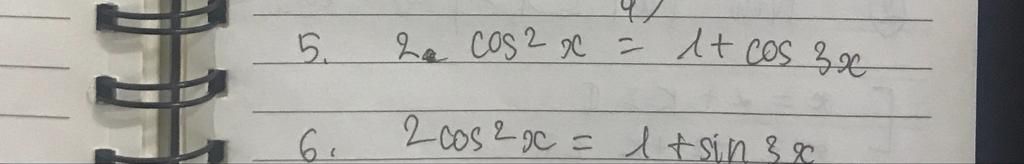 5. 2. cos² x = 1 + cos 3x
6. 2cos²x = 1 + sin 3x